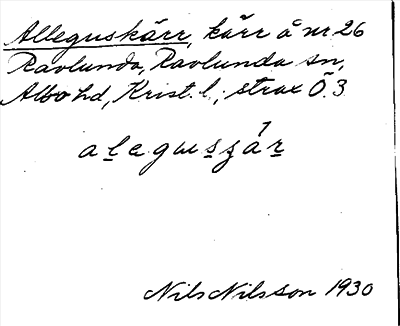 Alleguskärr, kärr å nr 26
Ravlunda, Ravlunda sn,
Albo hd, Krist. l., strax Ö. 3
Nils Nilsson 1930